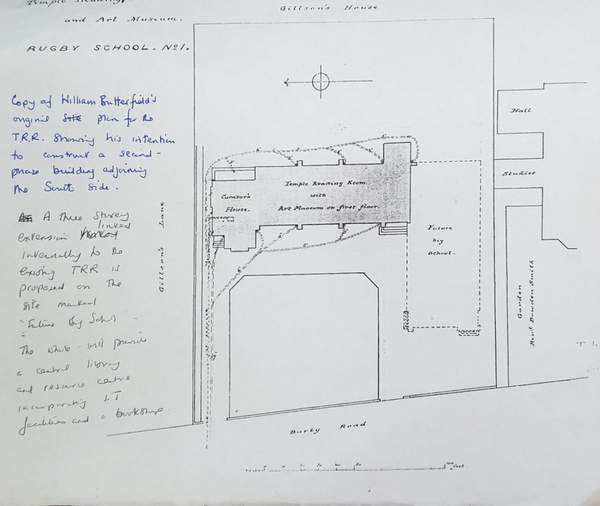 Temple Reading
and Art Museum.
RUGBY SCHOOL. No 1.
Gillson's House
Copy of William Butterfield's
original site plan for the
T.R.R. showing his intention
to construct a second-
phase building adjoining
the South side.
A three storey
extension linked
internally to the
existing TRR is
proposed on the
site marked
"Future Big School"
The whole will provide
a central library
and resource centre
incorporating I.T
facilities and a bookshop
Gillson's Lane
Curator's
House.
Temple Reading Room
with
Art Museum on first floor.
Future
big
School.
Hall
Studies
Garden
Revd Bowden Smith
Barby Road
feet